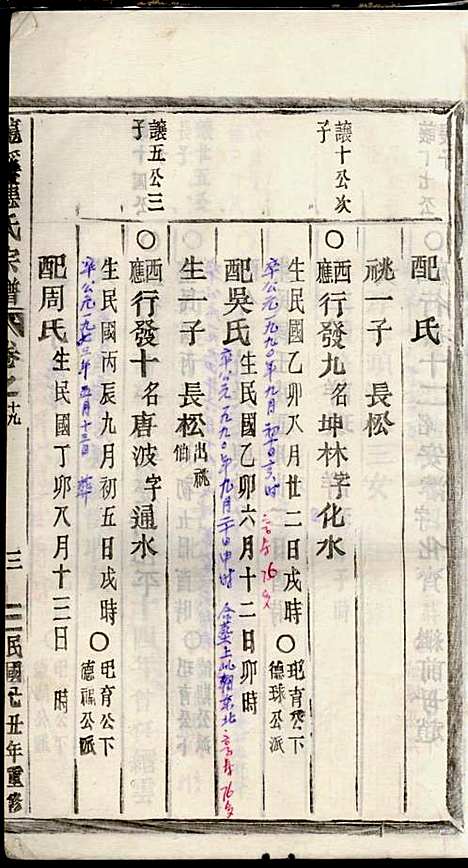 配 氏
祧一子 長松
讓十公次子
〇西應行發九名坤林字化水
生民國乙卯八月廿二日戌時〇玘育公下德球公派
卒公元一九九〇年九月初
高年76歲
配吳氏生民國乙卯六月十二日卯時
卒公元一九九〇年九月二十日申時 合葬上 東北 高年76歲
生一子 長松出祧伯
讓五公三子
〇西應行發十名唐波字通水
生民國丙辰九月初五日戌時〇玘育公下德福公派
卒公元一九七三年五月十三日 葬
配周氏生民國丁卯八月十三日 時
氏宗譜 卷之十九
三
民國乙丑年重修